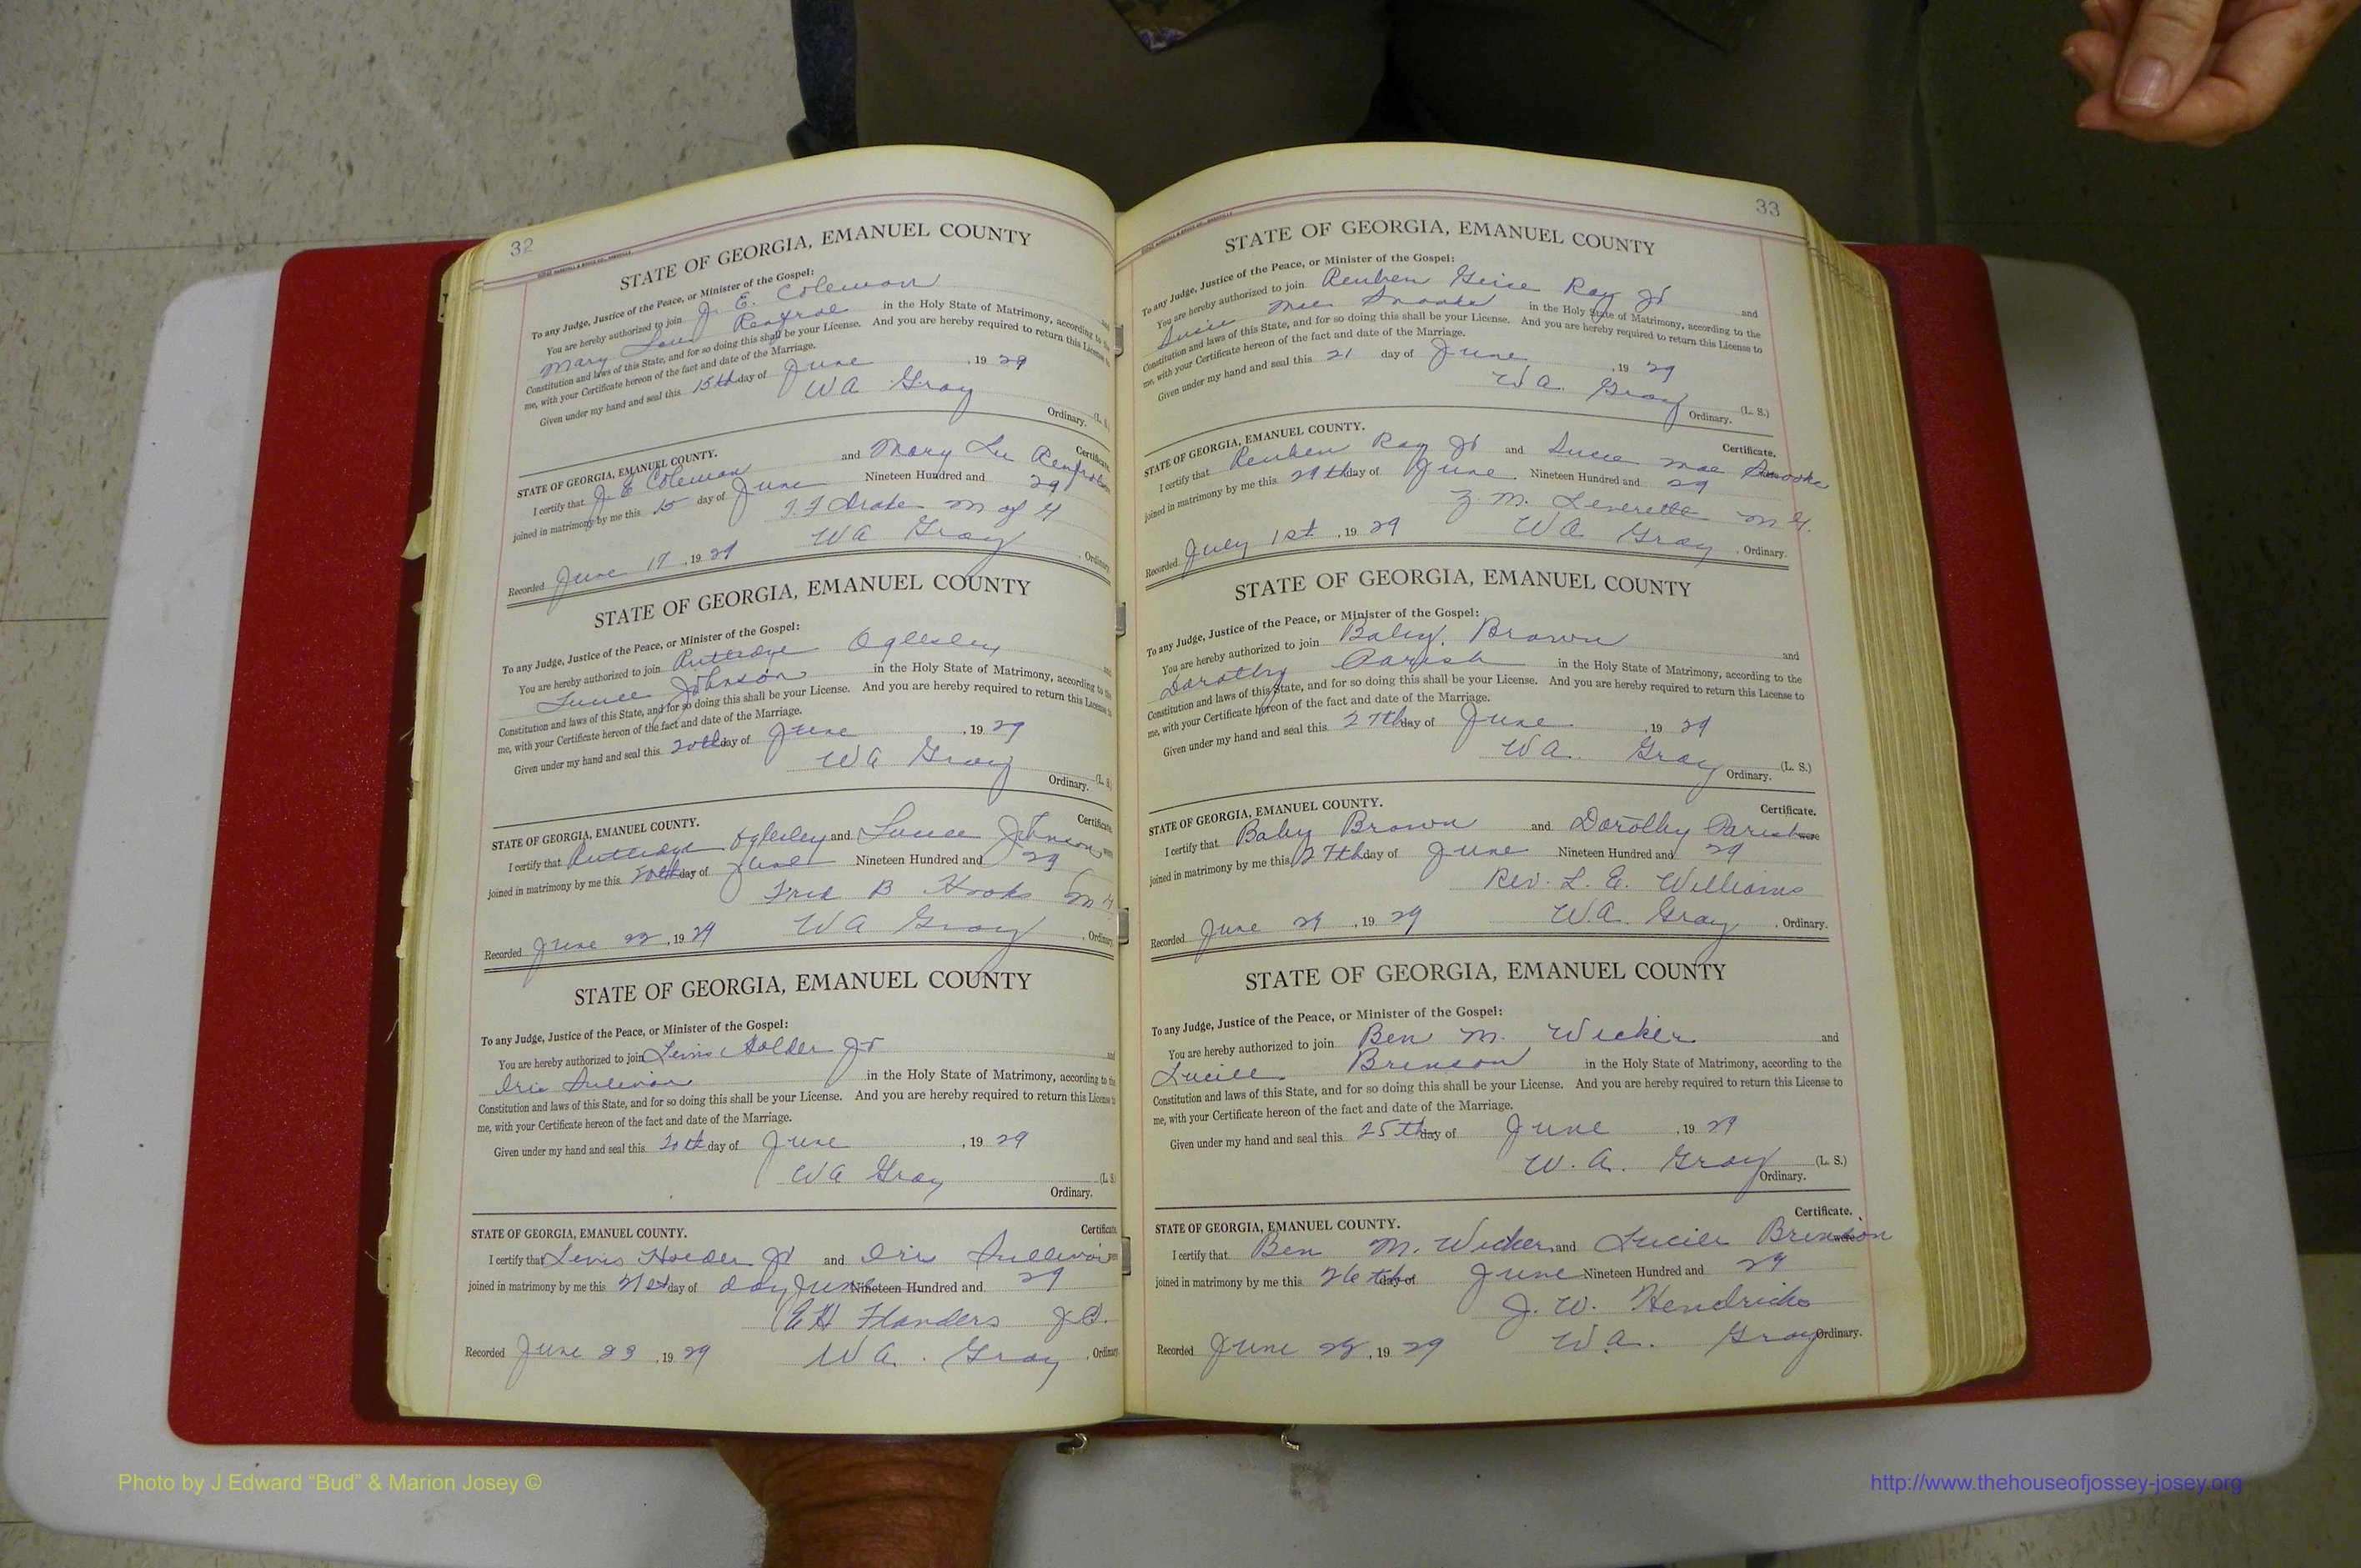 32
STATE OF GEORGIA, EMANUEL COUNTY
To any Judge, Justice of the Peace, or Minister of the Gospel:
You are hereby authorized to join J. E. Coleman and
Mary Lou Renfroe in the Holy State of Matrimony, according to the
Constitution and laws of this State, and for so doing this shall be your License. And you are hereby required to return this License to
me, with your Certificate hereon of the fact and date of the Marriage.
Given under my hand and seal this 15th day of June, 1929
W A Gray (L. S.)
Ordinary.
STATE OF GEORGIA, EMANUEL COUNTY. Certificate.
I certify that J. E Coleman and Mary Lu Renfroe
joined in matrimony by me this 15 day of June Nineteen Hundred and 29
Drake M of G
Recorded June 17, 1929 W A Gray, Ordinary
STATE OF GEORGIA, EMANUEL COUNTY
To any Judge, Justice of the Peace, or Minister of the Gospel:
You are hereby authorized to join Rutledge Oglesby and
Johnson in the Holy State of Matrimony, according to the
Constitution and laws of this State, and for so doing this shall be your License. And you are hereby required to return this License to
me, with your Certificate hereon of the fact and date of the Marriage.
Given under my hand and seal this 20th day of June, 1929
W A Gray (L. S.)
Ordinary.
STATE OF GEORGIA, EMANUEL COUNTY. Certificate.
I certify that Rutledge Oglesby and Johnson were
joined in matrimony by me this 20th day of June Nineteen Hundred and 29
Fred B Hooks M G
Recorded June 22, 1929 W A Gray, Ordinary
STATE OF GEORGIA, EMANUEL COUNTY
To any Judge, Justice of the Peace, or Minister of the Gospel:
You are hereby authorized to join Lewis Holder Jr and
Iris Sullivan in the Holy State of Matrimony, according to the
Constitution and laws of this State, and for so doing this shall be your License. And you are hereby required to return this License to
me, with your Certificate hereon of the fact and date of the Marriage.
Given under my hand and seal this 20th day of June, 1929
W A Gray (L. S
Ordinary.
STATE OF GEORGIA, EMANUEL COUNTY. Certificate.
I certify that Lewis Holder Jr and Iris Sullivan were
joined in matrimony by me this 21st day of day June Nineteen Hundred and 29
H Flanders J.P.
Recorded June 23, 1929 W A. Gray, Ordinary
33
STATE OF GEORGIA, EMANUEL COUNTY
To any Judge, Justice of the Peace, or Minister of the Gospel:
You are hereby authorized to join Reuben Ray Jr and
Susie Mae in the Holy State of Matrimony, according to the
Constitution and laws of this State, and for so doing this shall be your License. And you are hereby required to return this License to
me, with your Certificate hereon of the fact and date of the Marriage.
Given under my hand and seal this 21 day of June, 1929
W A. Gray (L. S.)
Ordinary.
STATE OF GEORGIA, EMANUEL COUNTY. Certificate.
I certify that Reuben Ray Jr and Susie Mae
joined in matrimony by me this 29th day of June Nineteen Hundred and 29
Z. M. Leverette M G.
Recorded July 1st, 1929 W A Gray, Ordinary.
STATE OF GEORGIA, EMANUEL COUNTY
To any Judge, Justice of the Peace, or Minister of the Gospel:
You are hereby authorized to join Baby Brown and
Dorothy Parish in the Holy State of Matrimony, according to the
Constitution and laws of this State, and for so doing this shall be your License. And you are hereby required to return this License to
me, with your Certificate hereon of the fact and date of the Marriage.
Given under my hand and seal this 27th day of June, 1929
W A. Gray (L. S.)
Ordinary.
STATE OF GEORGIA, EMANUEL COUNTY. Certificate.
I certify that Baby Brown and Dorothy Parish were
joined in matrimony by me this 27th day of June Nineteen Hundred and 29
Rev. L. E. Williams
Recorded June 29, 1929 W.A. Gray, Ordinary.
STATE OF GEORGIA, EMANUEL COUNTY
To any Judge, Justice of the Peace, or Minister of the Gospel:
You are hereby authorized to join Ben M. Wicker and
Lucile Brinson in the Holy State of Matrimony, according to the
Constitution and laws of this State, and for so doing this shall be your License. And you are hereby required to return this License to
me, with your Certificate hereon of the fact and date of the Marriage.
Given under my hand and seal this 25th day of June, 1929
W. A. Gray (L. S.)
Ordinary.
STATE OF GEORGIA, EMANUEL COUNTY. Certificate.
I certify that Ben M. Wicker and Lucile Brinson were
joined in matrimony by me this 26th day of June Nineteen Hundred and 29
J. W. Hendricks
Recorded June 28, 1929 W. A. Gray Ordinary.
Photo by J Edward “Bud” & Marion Josey ©
http://www.thehouseofjossey-josey.org